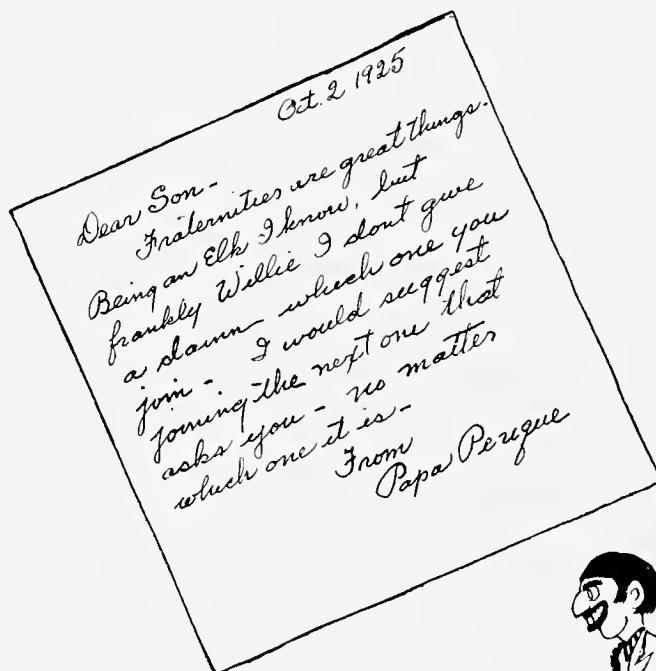 Oct. 2 1925
Dear Son -
Fraternities are great things.
Being an Elk I know, but
frankly Willie I dont give
a damn which one you
join - I would suggest
joining the next one that
asks you - no matter
which one it is -
From
Papa Perique